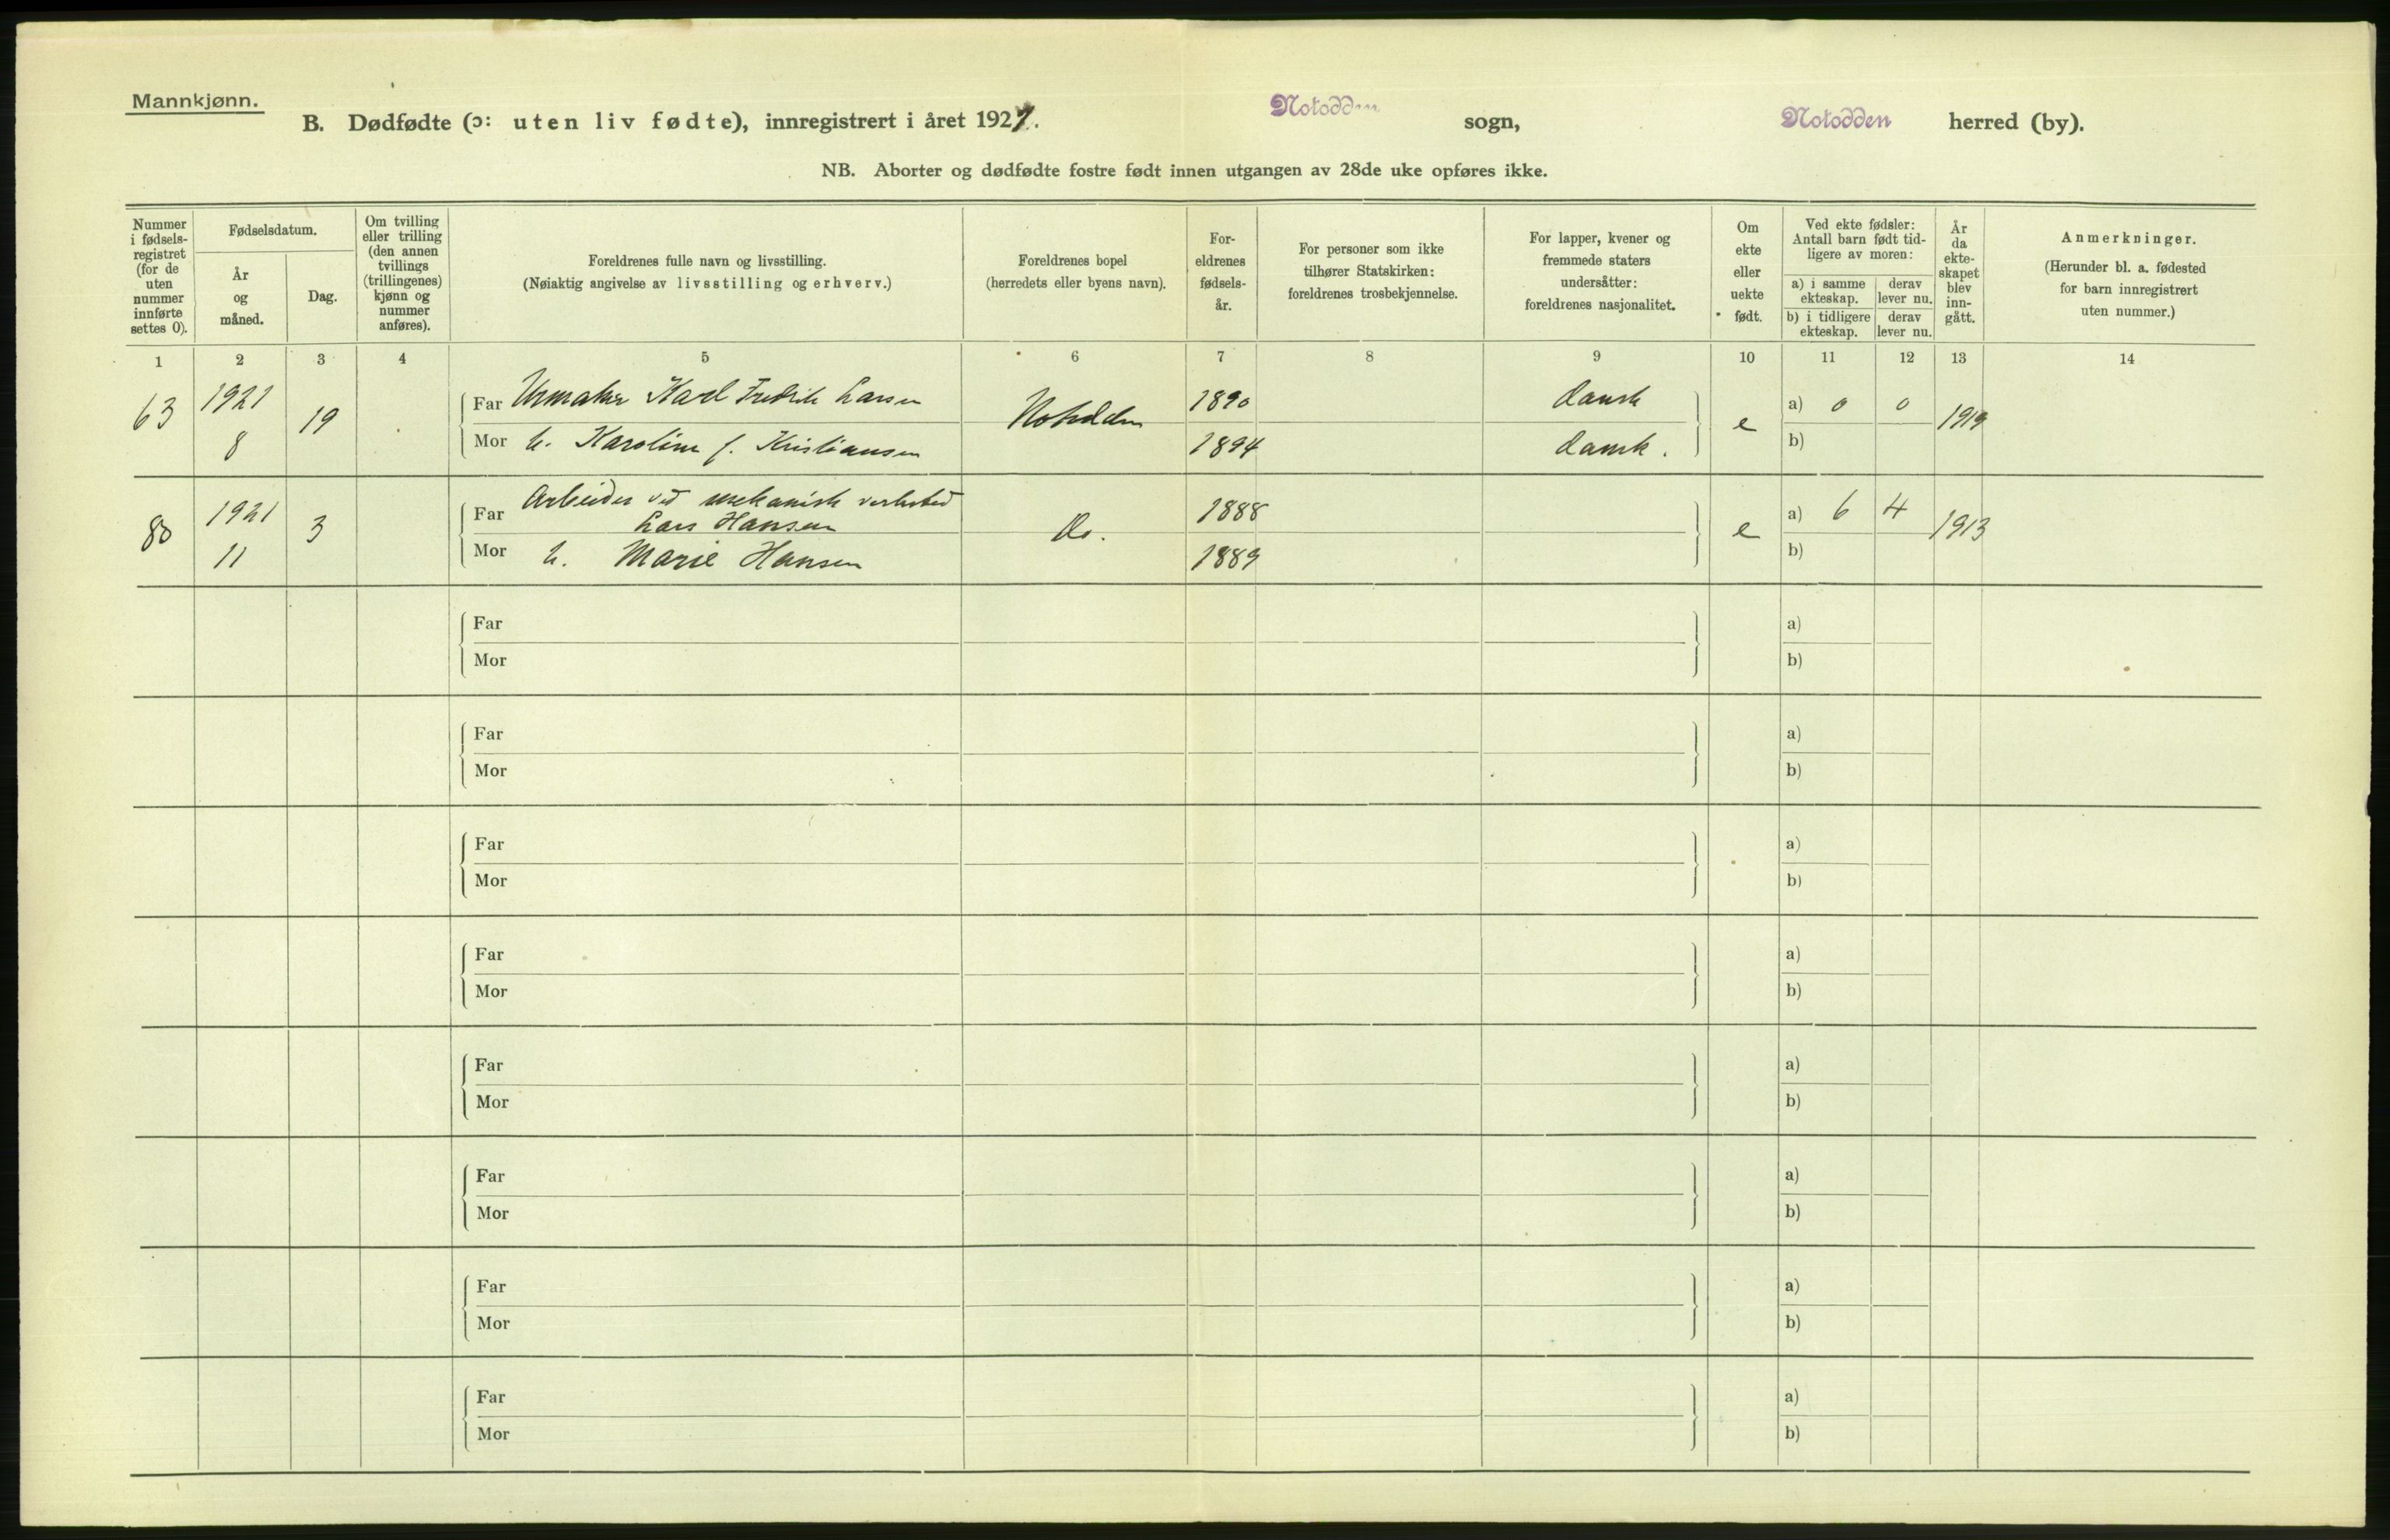 Mannkjønn.
B. Dødfødte (ɔ: uten liv fødte), innregistrert i året 1921.
Notodden sogn,
Notodden herred (by).
NB. Aborter og dødfødte fostre født innen utgangen av 28de uke opføres ikke.
Nummer
i fødsels-
registret
(for de
uten
nummer
innførte
settes 0).
Fødselsdatum.
År
og
måned.
Dag.
Om tvilling
eller trilling
(den annen
tvillings
(trillingenes)
kjønn og
nummer
anføres).
Foreldrenes fulle navn og livsstilling.
(Nøiaktig angivelse av livsstilling og erhverv.)
Foreldrenes bopel
(herredets eller byens navn).
For-
eldrenes
fødsels-
år.
For personer som ikke
tilhører Statskirken:
foreldrenes trosbekjennelse.
For lapper, kvener og
fremmede staters
undersåtter:
foreldrenes nasjonalitet.
Om
ekte
eller
uekte
født.
Ved ekte fødsler:
Antall barn født tid-
ligere av moren:
a) i samme
ekteskap.
derav
lever nu.
b) i tidligere
ekteskap.
derav
lever nu.
År
da
ekte-
skapet
blev
inn-
gått.
Anmerkninger.
(Herunder bl. a. fødested
for barn innregistrert
uten nummer.)
1 2 3 4 5 6 7 8 9 10 11 12 13 14
63 1921 8 19
Far Urmaker Karl Fredrik Larsen
Mor h. Karoline f. Kristiansen
Notodden
1890
1894
dansk
dansk.
e
a) 0 0
b)
1919
80 1921 11 3
Far Arbeider ved mekanisk verksted
Lars Hansen
Mor h. Marie Hansen
Do.
1888
1889
e
a) 6 4
b)
1913
Far a)
Mor b)
Far a)
Mor b)
Far a)
Mor b)
Far a)
Mor b)
Far a)
Mor b)
Far a)
Mor b)
Far a)
Mor b)
Far a)
Mor b)